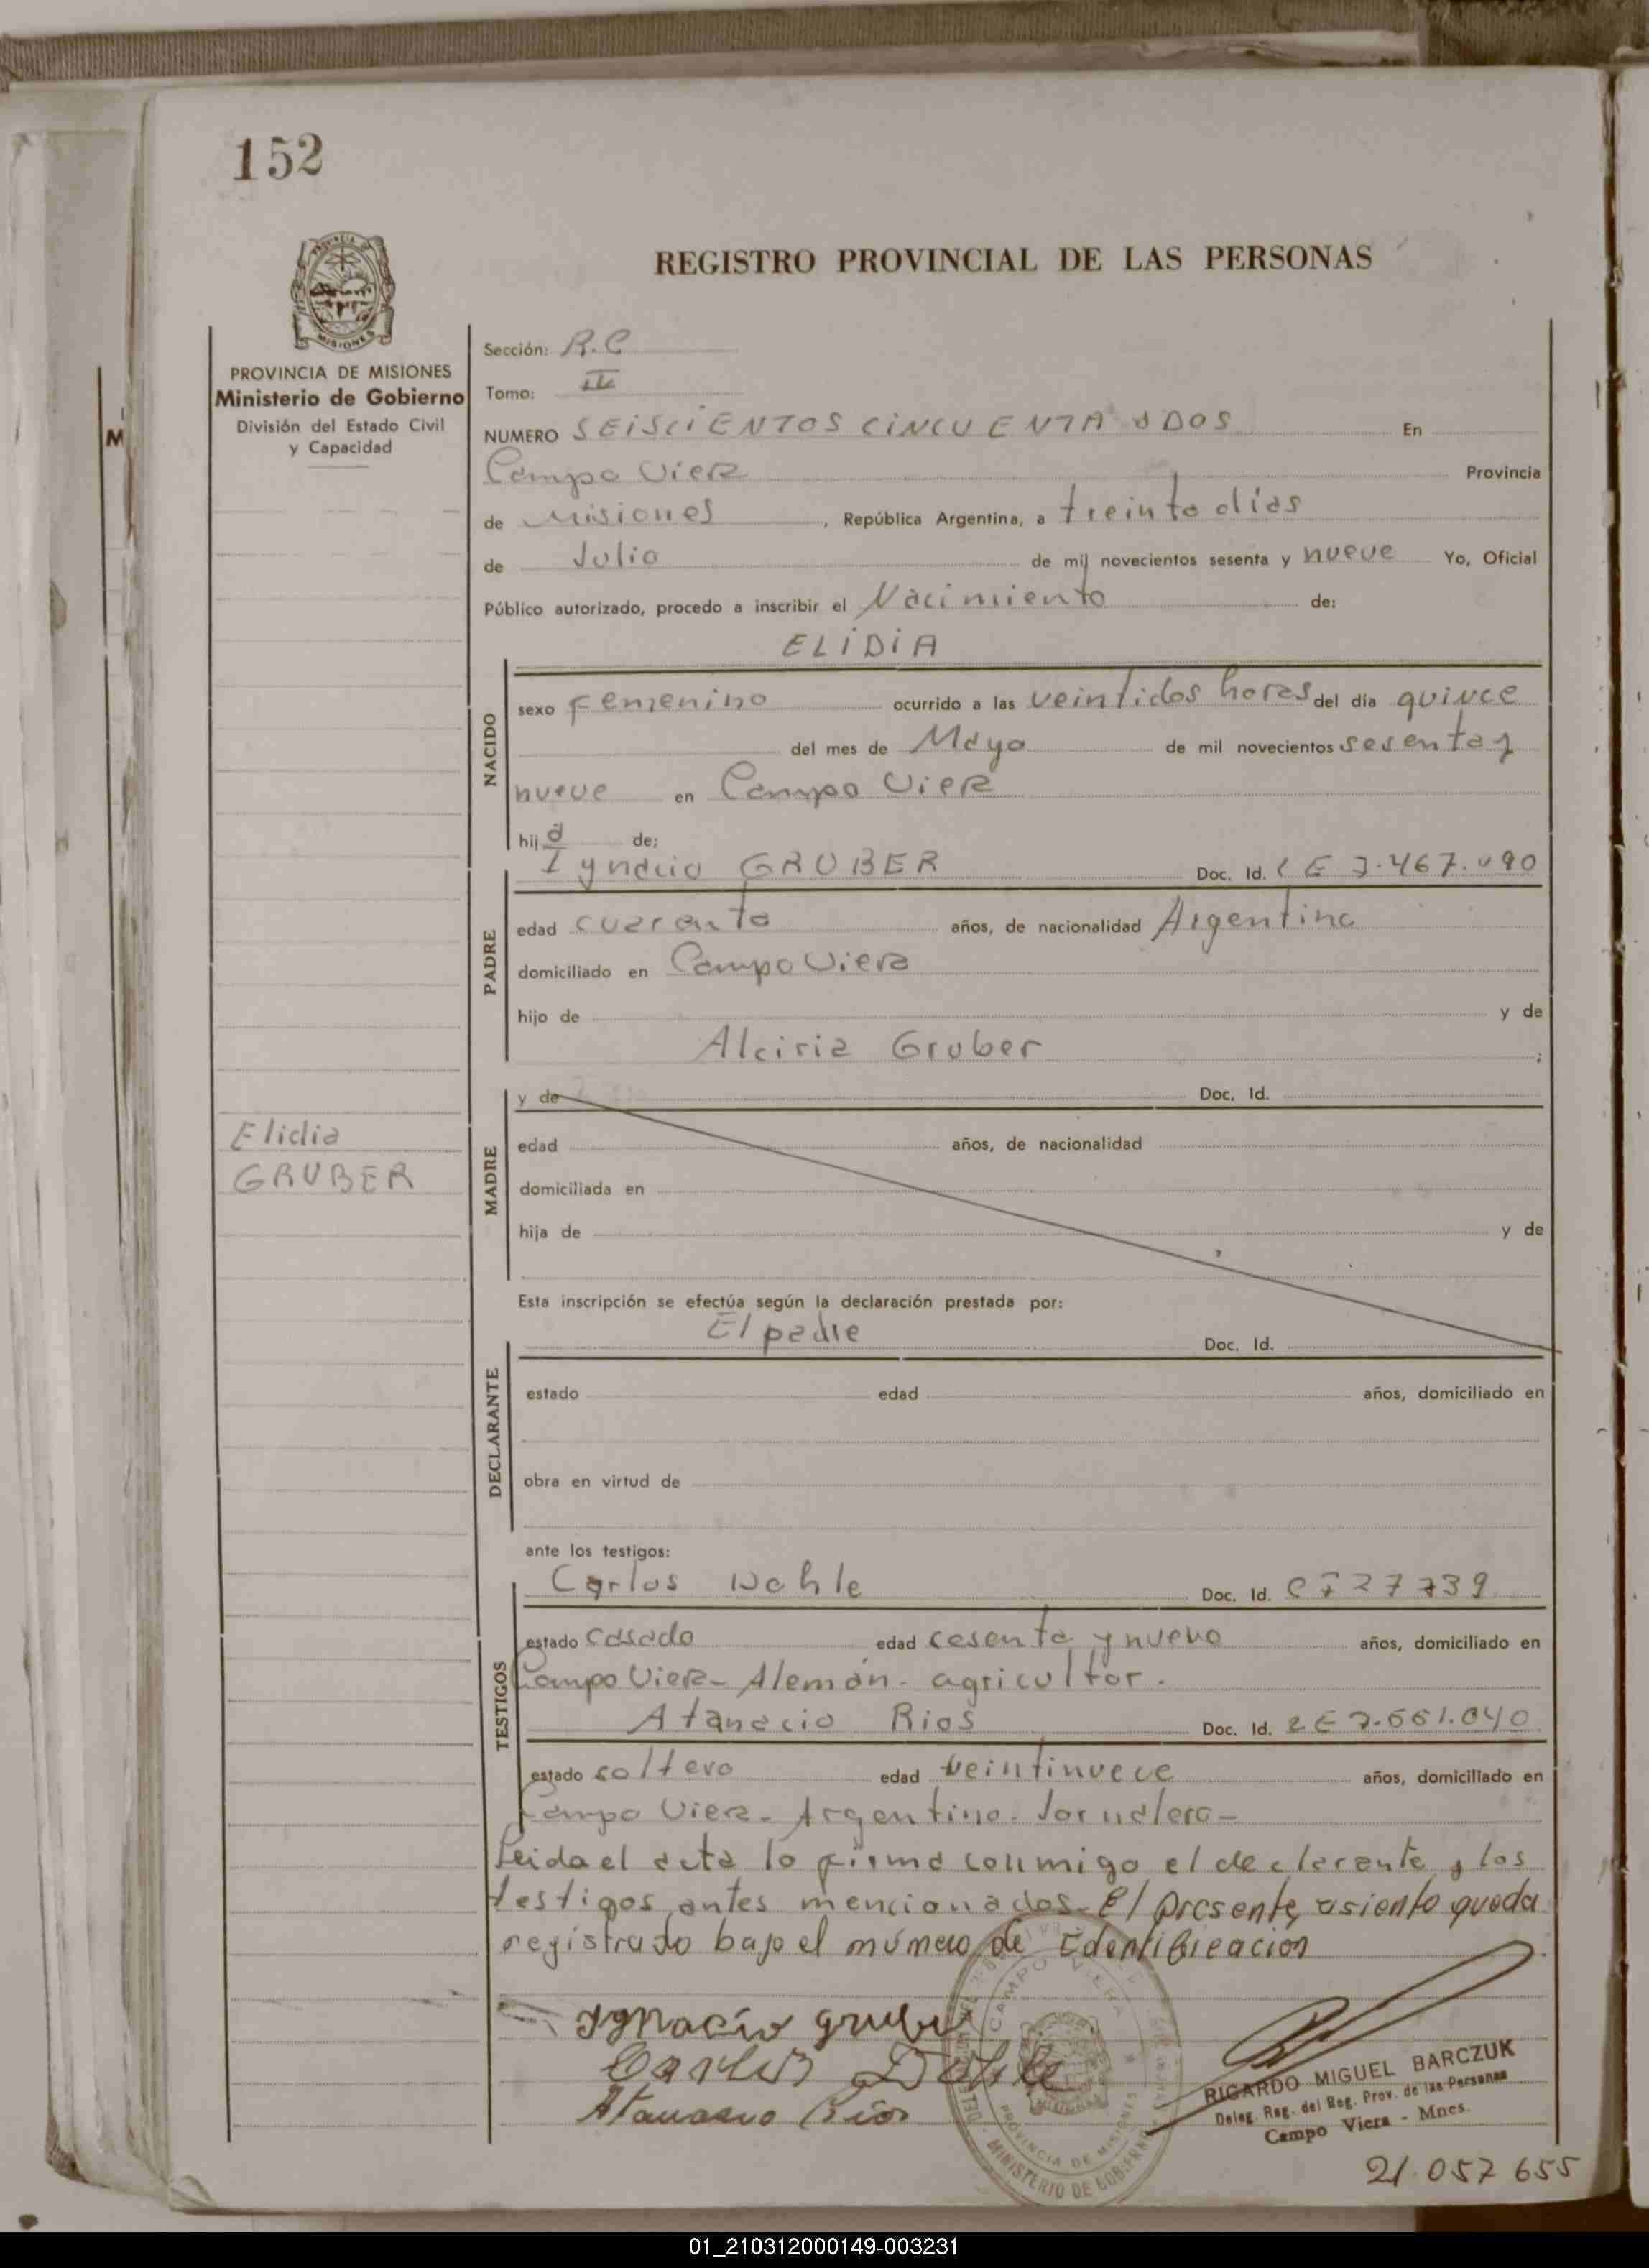 152
REGISTRO PROVINCIAL DE LAS PERSONAS
PROVINCIA DE MISIONES
Ministerio de Gobierno
División del Estado Civil
y Capacidad
Sección: R.C
Tomo: IV
NUMERO SEISCIENTOS CINCUENTA y DOS En
Campo Viera Provincia
de Misiones , República Argentina, a treinta días
de Julio de mil novecientos sesenta y nueve Yo, Oficial
Público autorizado, procedo a inscribir el Nacimiento de:
ELIDIA
NACIDO
sexo Femenino ocurrido a las veintidos horas del día quince
del mes de Mayo de mil novecientos sesenta y
nueve en Campo Viera
hija de;
Ignacio GRUBER Doc. Id. LE 7.467.090
PADRE
edad cuarenta años, de nacionalidad Argentina
domiciliado en Campo Viera
hijo de y de
Alciria Gruber ;
Elidia
GRUBER
MADRE
y de Doc. Id.
edad años, de nacionalidad
domiciliada en
hija de y de
Esta inscripción se efectúa según la declaración prestada por:
El padre Doc. Id.
DECLARANTE
estado edad años, domiciliado en
obra en virtud de
ante los testigos:
TESTIGOS
Carlos Dohle Doc. Id.
estado casado edad cesenta y nueve años, domiciliado en
Campo Viera - Alemán - agricultor.
Atanacio Rios Doc. Id.
estado soltero edad veintinueve años, domiciliado en
Campo Viera - Argentino - Jornalero -
Leida el acta lo firma conmigo el declarante y los
testigos antes mencionados - El presente asiento queda
registrado bajo el número de Identificación
Ignacio gruber
Carlos Dohle
Atanasio Rios
CAMPO VIERA
PROVINCIA DE MISIONES
MINISTERIO DE GOBIERNO
RICARDO MIGUEL BARCZUK
Deleg. Reg. del Reg. Prov. de las Personas
Campo Viera - Mnes.
21.057 655
01_210312000149-003231